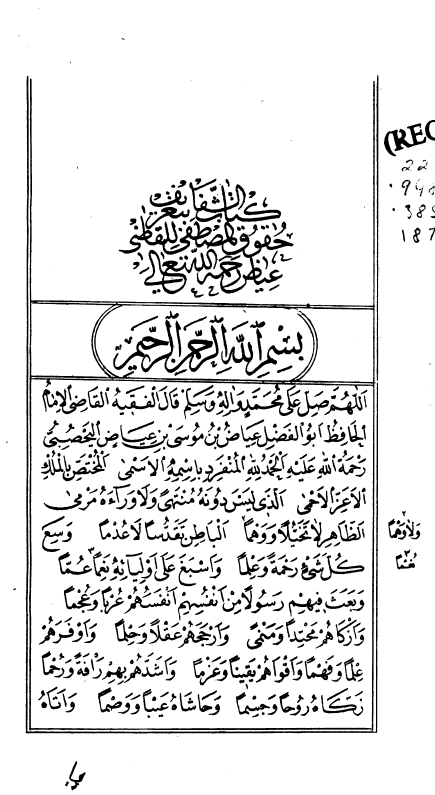 كتاب الشفا بتعريف
حقوق المصطفى للقاضى
عياض رحمه الله تعالى
بسم الله الرحمن الرحيم
اللهم صل على محمد واله وسلم قال الفقيه القاضى الامام
الحافظ ابو الفضل عياض بن موسى بن عياض اليحصبى
رحمة الله عليه الحمد لله المنفرد باسمه الاسمى المختص بالملك
الاعز الاحمى الذى ليس دونه منتهى ولا وراءه مرمى
الظاهر لا تخيلا ووهما الباطن تقدسا لا عدما وسع
كل شىء رحمة وعلما واسبغ على اوليائه نعما عما
وبعث فيهم رسولا من انفسهم انفسهم عربا وعجما
وازكاهم محتدا ومنمى وارجحهم عقلا وحلما واوفرهم
علما وفهما واقواهم يقينا وعزما واشدهم بهم رأفة ورحما
زكاه روحا وجسما وحاشاه عيبا ووصما واتاه
ولا وهما
(REC
22
.94
.385
187